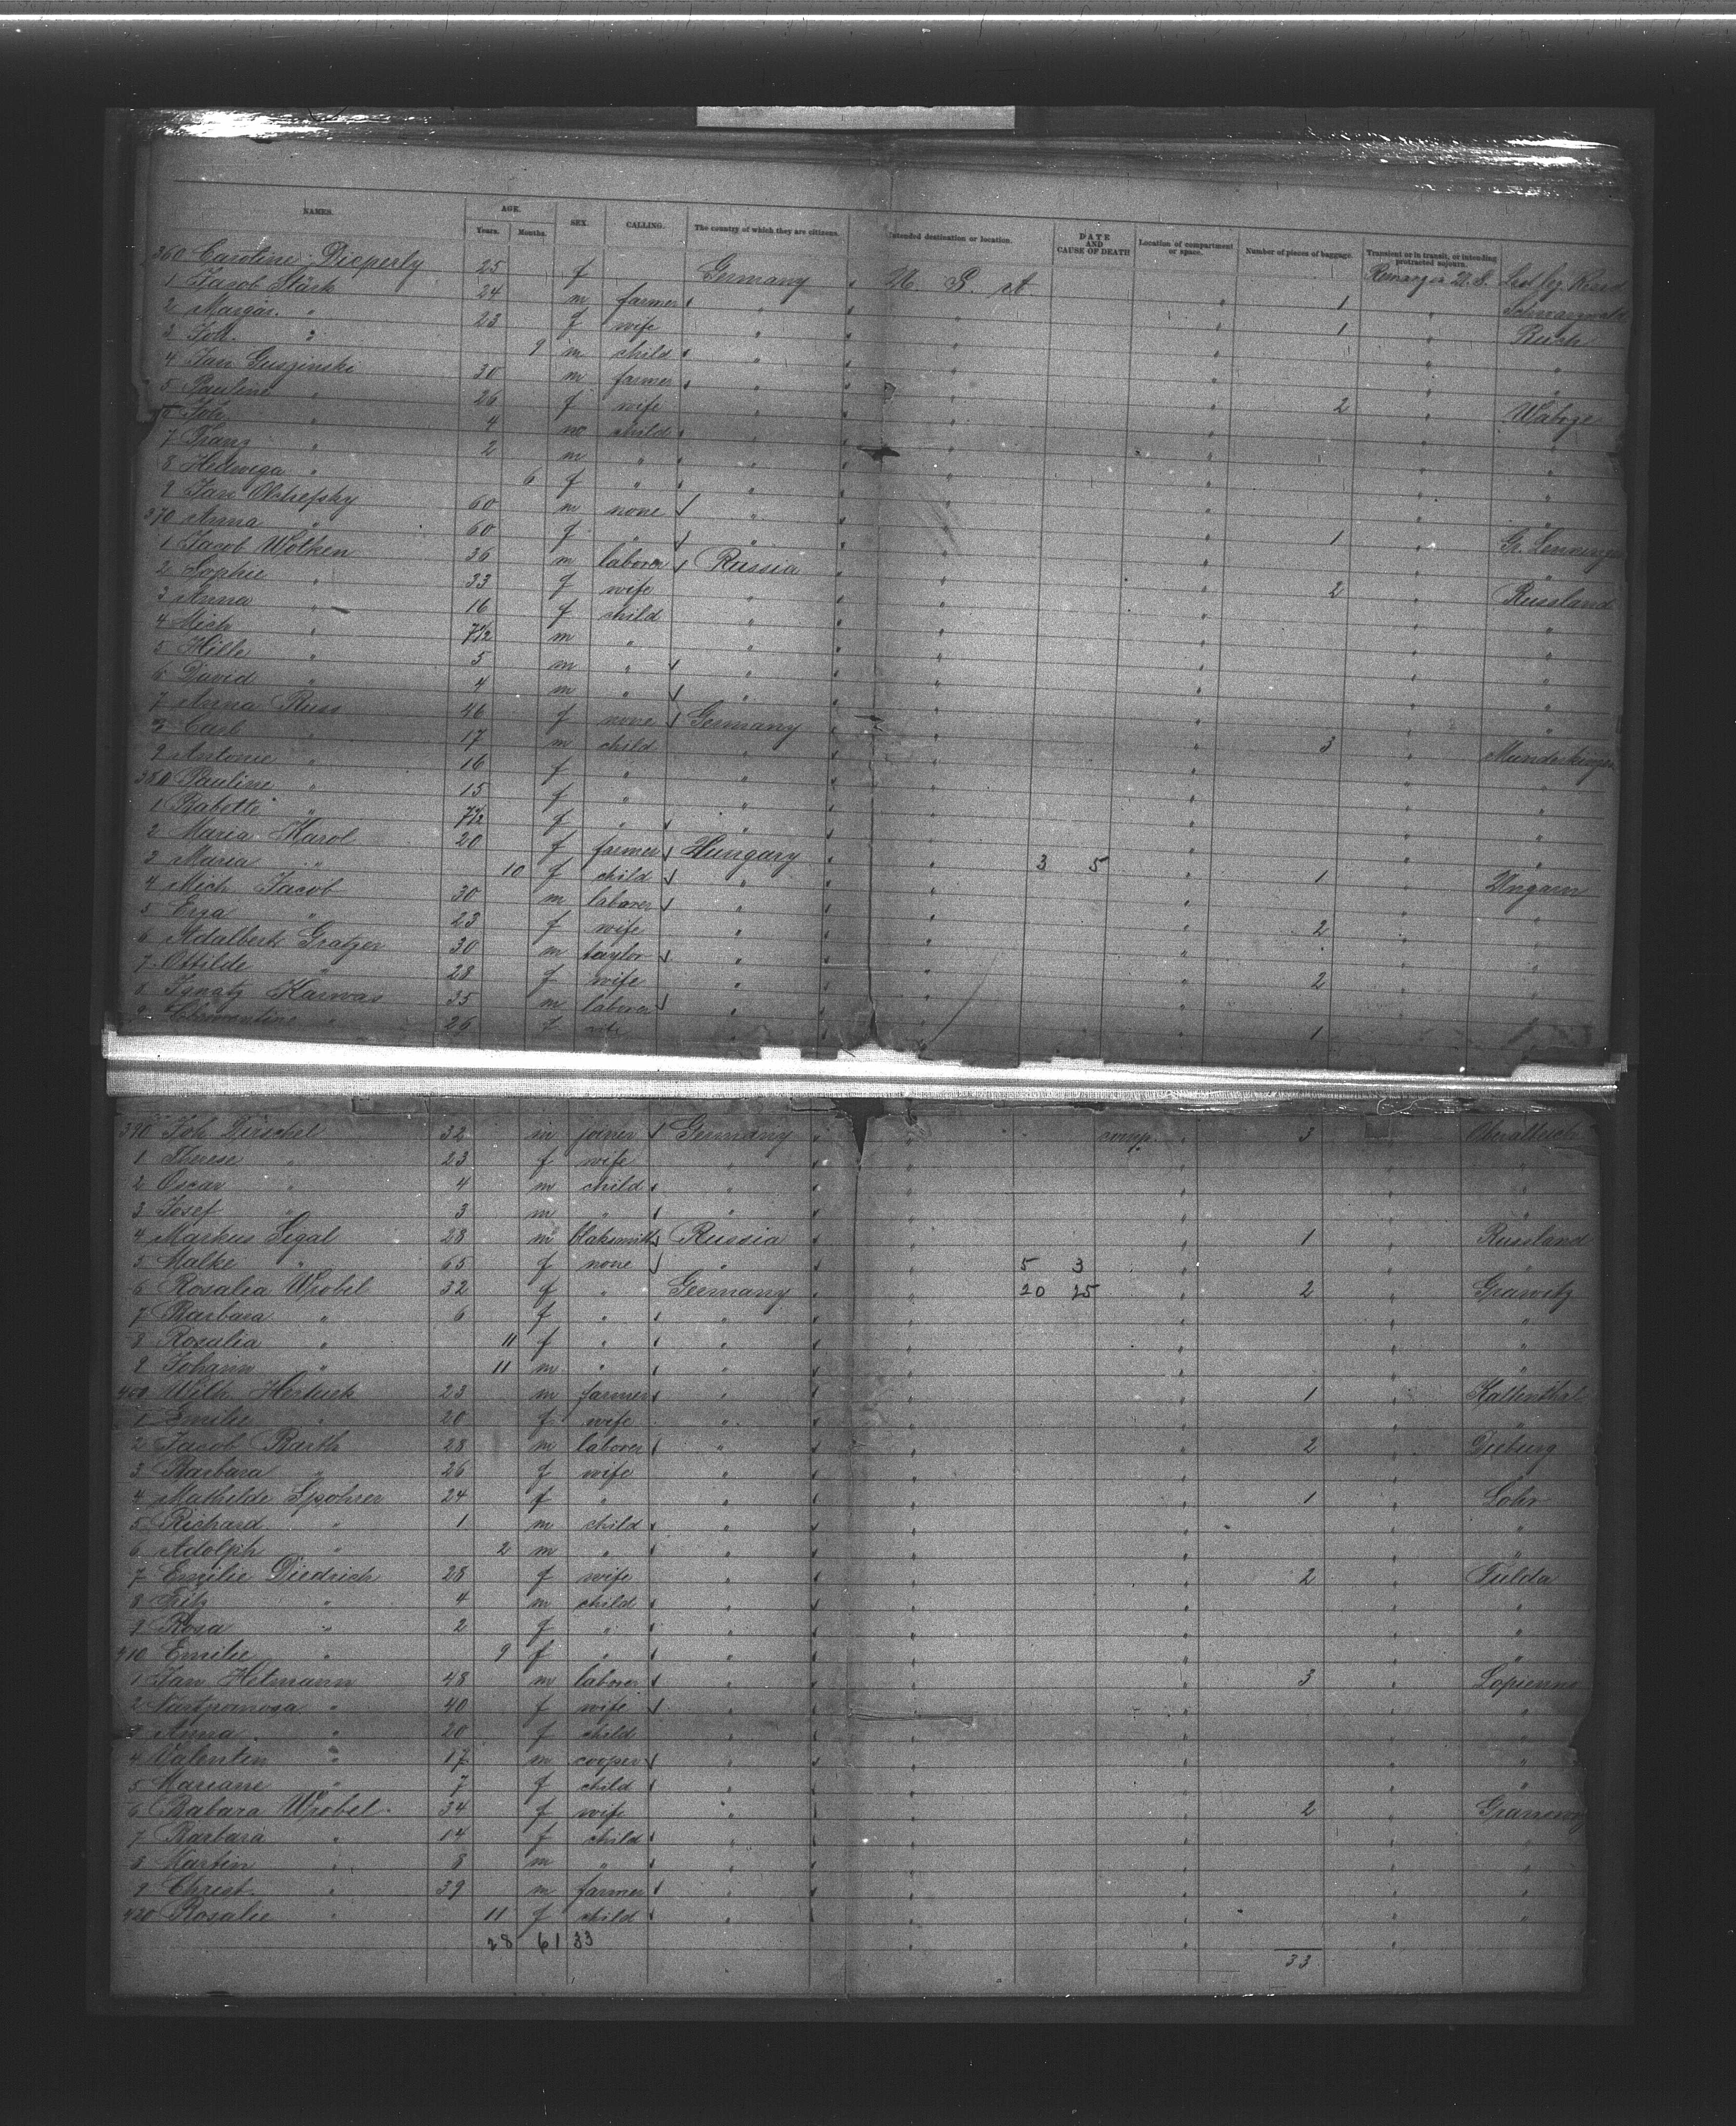 NAMES. AGE. SEX. CALLING. The country of which they are citizens. Intended destination or location. DATE AND CAUSE OF DEATH Location of compartment or space. Number of pieces of baggage. Transient or in transit, or intending protracted sojourn.
Years. Months.
360 Caroline Dieperly 25 f Germany U. S. A. Remary in U. S.
1 Jacob Stärk 24 m farmer " " 1 " Schwarzwald
2 Margar. " 23 f wife " " 1 "
3 Joh. " 9 m child " " " "
4 Jan Guszinski 30 m farmer " " " "
5 Pauline " 26 f wife " " 2 "
6 Joh. " 4 m child " " " "
7 Franz " 2 m " " " " "
8 Hedwiga " 6 f " " " " "
9 Jan 60 m none " " " "
370 Anna " 60 f " " " 1 "
1 Jacob Wolken 36 m laborer Russia " " "
2 Sophie " 33 f wife " " 2 " Russland
3 Anna " 16 f child " " " "
4 Mich " 7 1/2 m " " " " "
5 Hille " 5 m " " " " "
6 David " 4 m " " " " "
7 Anna Russ 46 f none Germany " " "
8 Carl " 17 m child " " 3 " Munderkingen
9 Antonie " 16 f " " " " "
380 Pauline " 15 f " " " " "
1 Babette " 7 1/2 f " " " " "
2 Maria Karol 20 f farmer Hungary " 3 5 " "
3 Maria " 10 f child " " 1 " Ungarn
4 Mich Jacob 30 m laborer " " " "
5 Erza " 23 f wife " " 2 " "
6 Adalbert Gratzer 30 m taylor " " " "
7 Ottilde " 28 f wife " " 2 " "
8 Ignatz Karvas 35 m laborer " " " "
9 Clementine " 26 f wife " " 1 "
390 Joh Dirschel 32 m joiner Germany " " comp. " 3 "
1 Therese " 23 f wife " " " " "
2 Oscar " 4 m child " " " " "
3 Josef " 3 m " " " " " "
4 Markus Segal 28 m blaksmith Russia " " 1 " Russland
5 Malke " 65 f none " " 5 3 " " "
6 Rosalia Wrobel 32 f " Germany " 20 25 " 2 " Grawitz
7 Barbara " 6 f " " " " " "
8 Rosalia " 11 f " " " " " "
9 Johann " 11 m " " " " " "
400 Wilh. 23 m farmer " " " 1 " Kallenthal
1 Emilie " 20 f wife " " " " "
2 Jacob Barth 28 m laborer " " " 2 " Dieburg
3 Barbara " 26 f wife " " " " "
4 Mathilde Spohrer 24 f " " " " 1 " Lohr
5 Richard " 1 m child " " " " "
6 Adolph " 2 m " " " " " "
7 Emilie Diedrich 28 f wife " " " 2 " Fulda
8 Fritz " 4 m child " " " " "
9 Rosa " 2 f " " " " " "
410 Emilie " 9 f " " " " " "
1 Jan Hetmann 48 m laborer " " " 3 " Lopienno
2 " 40 f wife " " " " "
3 Anna " 20 f child " " " " "
4 Valentin " 17 m cooper " " " " "
5 Mariane " 7 f child " " " " "
6 Babara Wrobel 34 f wife " " " 2 "
7 Barbara " 14 f child " " " " "
8 Martin " 8 m " " " " " "
9 Christ " 39 m farmer " " " " "
420 Rosalie " 11 f child " " " " "
28 61 33 " " "
33